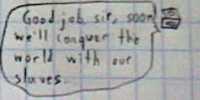 Good job sir, soon
we'll conquer the
world with our
slaves.